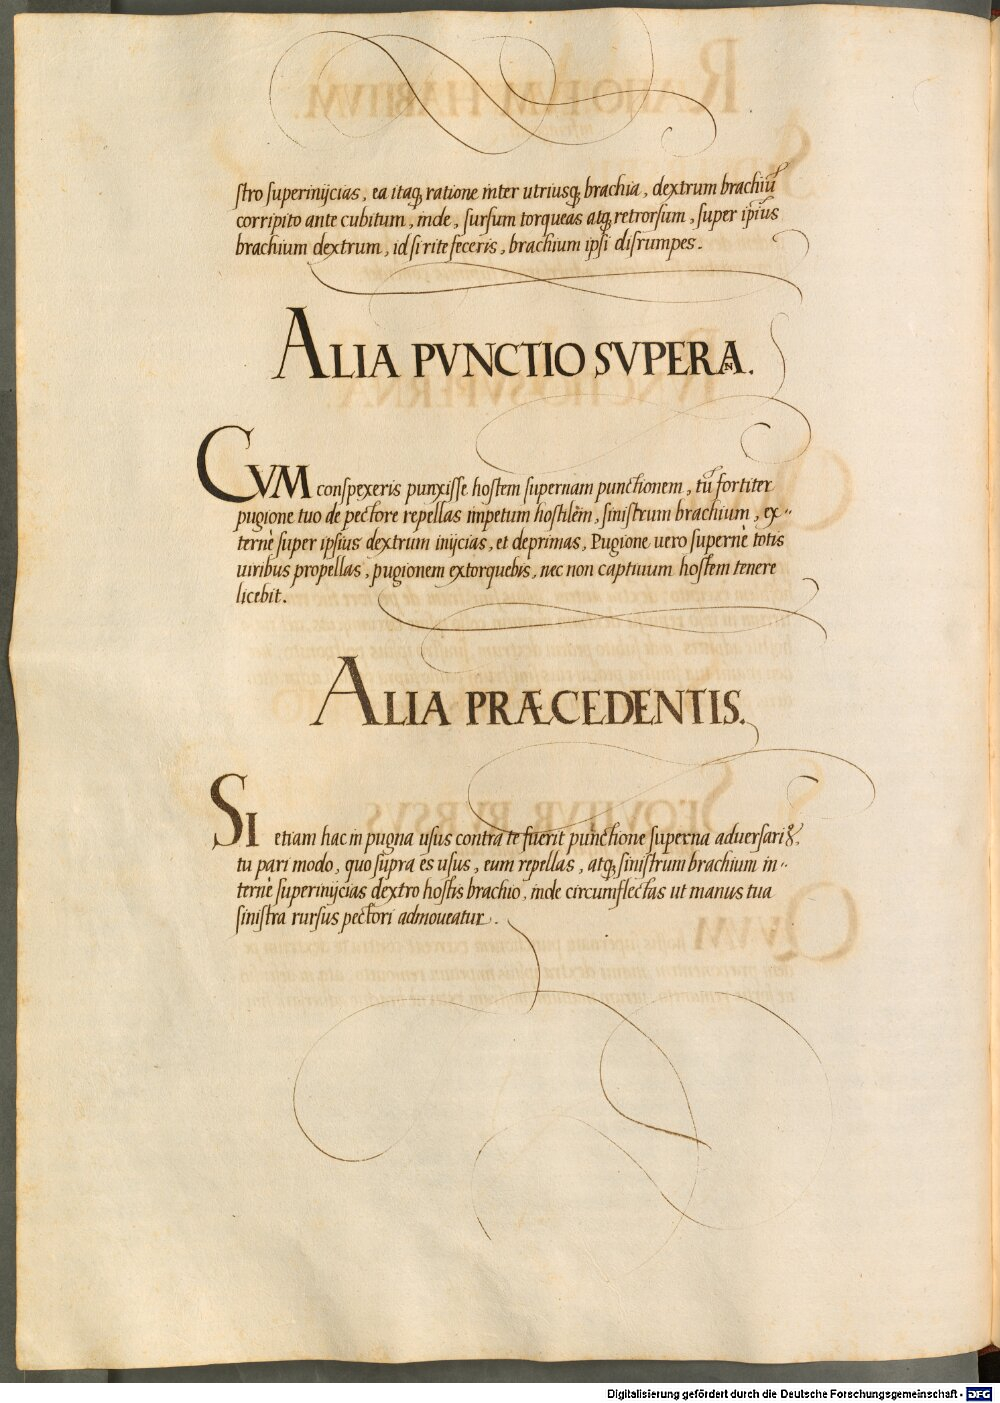 stro superinijcias, ea itaq; ratione inter utriusq; brachia, dextrum brachiũ
corripito ante cubitum, inde, sursum torqueas atq; retrorsum, super ipsius
brachium dextrum, id si rite feceris, brachium ipsi disrumpes.
ALIA PVNCTIO SVPERNA.
CVM conspexeris punxisse hostem supernam punctionem, tũ fortiter
pugione tuo de pectore repellas impetum hostilem, sinistrum brachium, ex-
ternè super ipsius dextrum inijcias, et deprimas, Pugione uero supernè totis
uiribus propellas, pugionem extorquebis, nec non captiuum hostem tenere
licebit.
ALIA PRÆCEDENTIS.
SI etiam hac in pugna usus contra te fuerit punctione superna aduersari9,
tu pari modo, quo supra es usus, eum repellas, atq; sinistrum brachium in-
ternè superinijcias dextro hostis brachio, inde circumflectas ut manus tua
sinistra rursus pectori admoueatur.
Digitalisierung gefördert durch die Deutsche Forschungsgemeinschaft - DFG